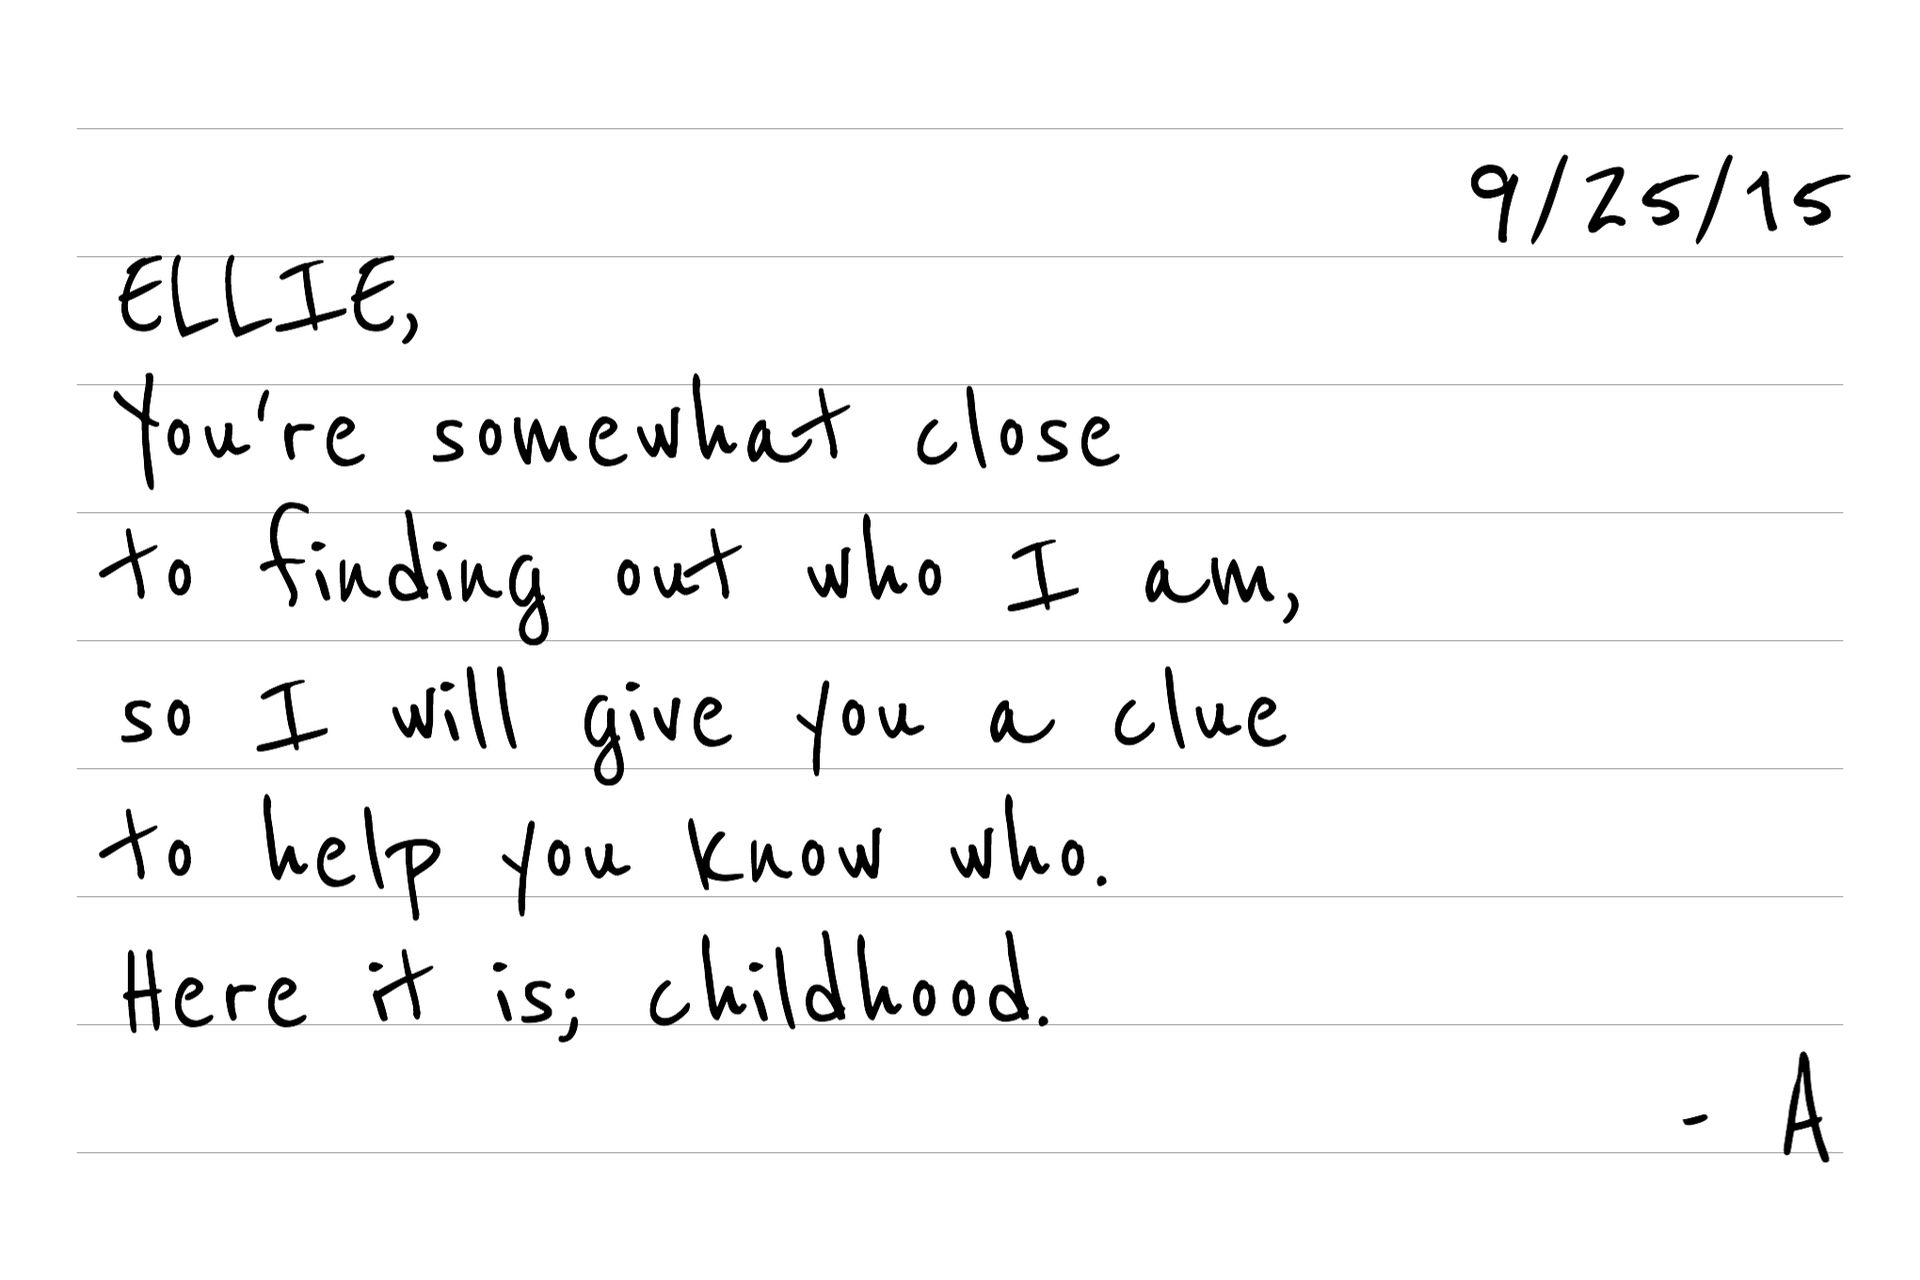 9/25/15
ELLIE,
You're somewhat close
to finding out who I am,
so I will give you a clue
to help you know who.
Here it is; childhood.
- A